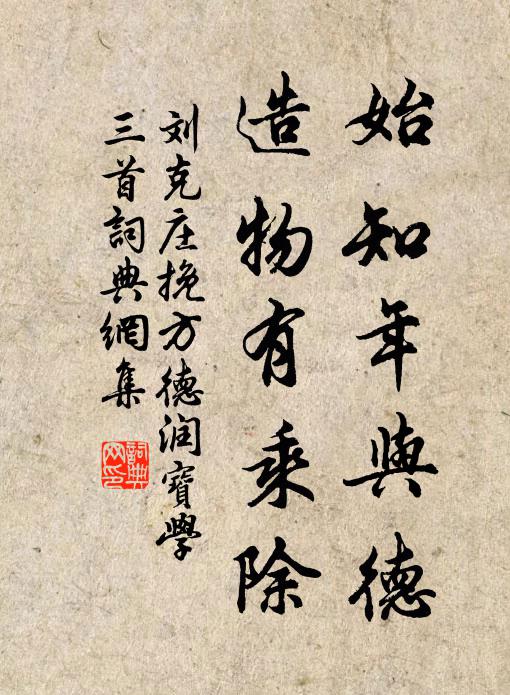 始知年與德
造物有乘除
刘克庄挽方德润寶學
三首詞典網集
詞典网印